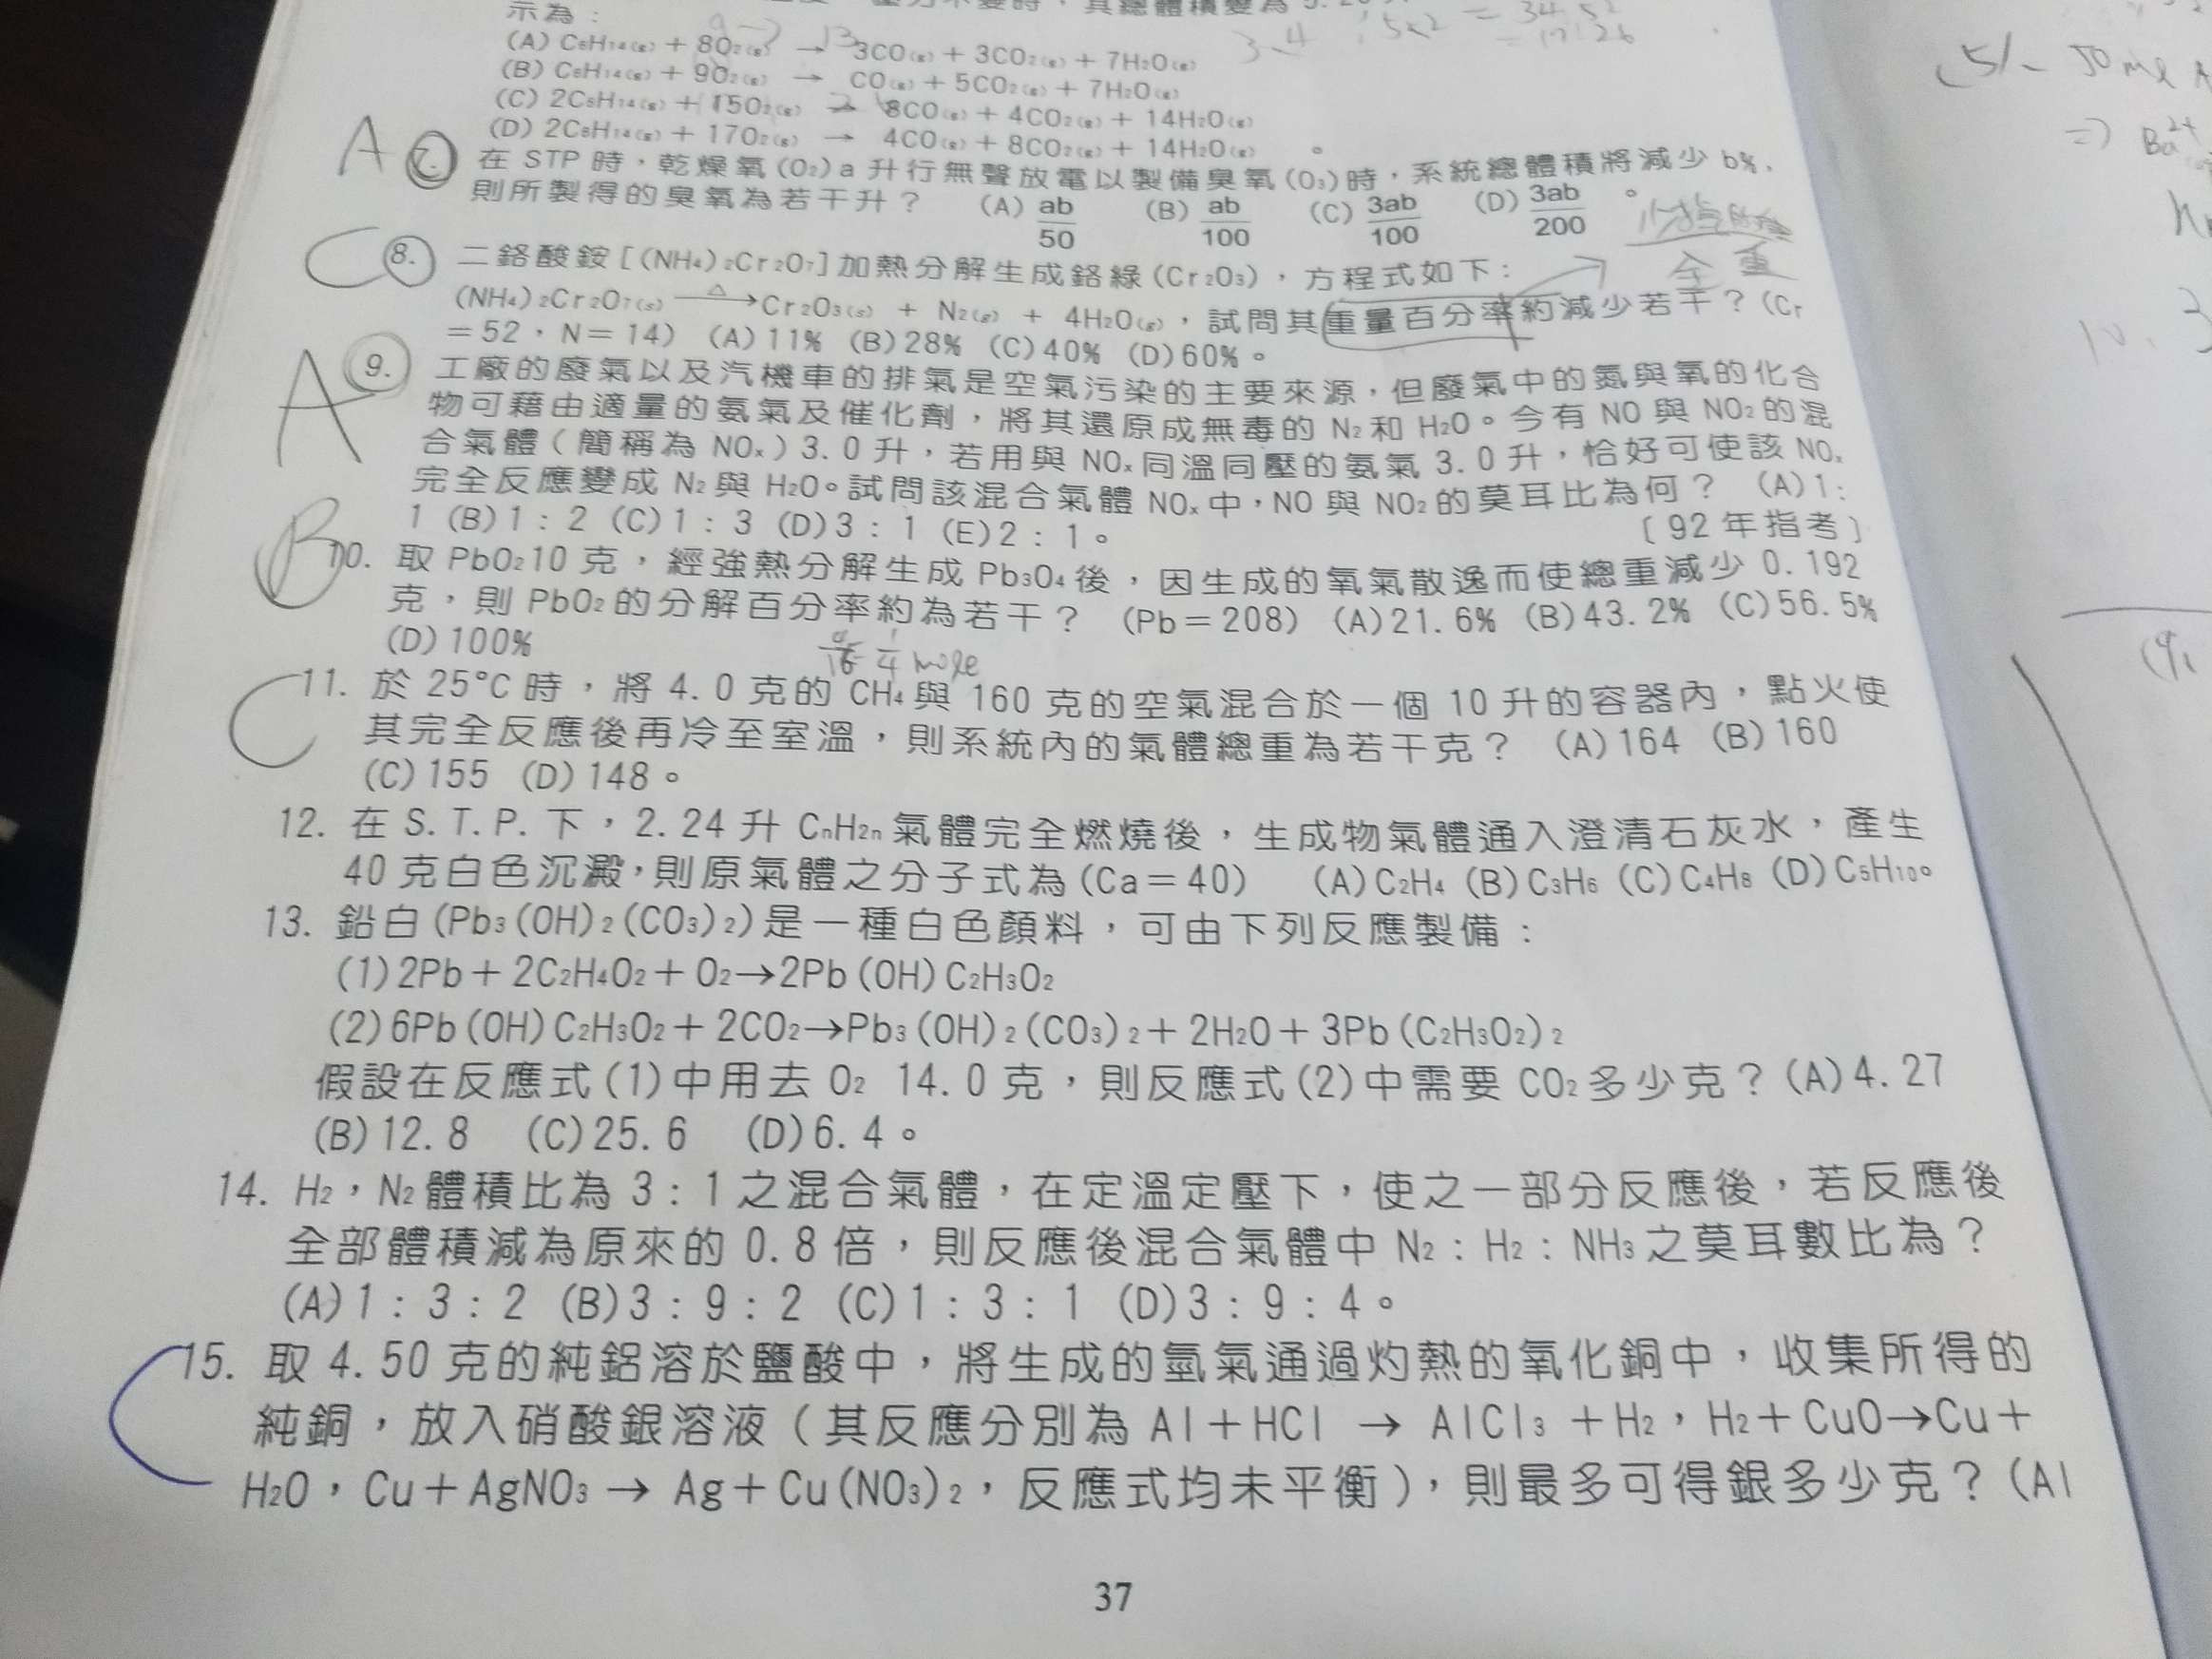 示為：
(A) C6H14(g) + 8O2(g) → 3CO(g) + 3CO2(g) + 7H2O(g)
(B) C6H14(g) + 9O2(g) → CO(g) + 5CO2(g) + 7H2O(g)
(C) 2C6H14(g) + 15O2(g) → 8CO(g) + 4CO2(g) + 14H2O(g)
(D) 2C6H14(g) + 17O2(g) → 4CO(g) + 8CO2(g) + 14H2O(g) 。
A 7. 在 STP 時，乾燥氧(O2)a 升行無聲放電以製備臭氧(O3)時，系統總體積將減少 b%，
則所製得的臭氧為若干升？ (A) ab/50 (B) ab/100 (C) 3ab/100 (D) 3ab/200 。
全重
C 8. 二鉻酸銨[(NH4)2Cr2O7]加熱分解生成鉻綠(Cr2O3)，方程式如下：
(NH4)2Cr2O7(s) △→ Cr2O3(s) + N2(g) + 4H2O(g)，試問其重量百分率約減少若干？(Cr
＝52，N＝14) (A)11% (B)28% (C)40% (D)60%。
A 9. 工廠的廢氣以及汽機車的排氣是空氣污染的主要來源，但廢氣中的氮與氧的化合
物可藉由適量的氨氣及催化劑，將其還原成無毒的 N2 和 H2O。今有 NO 與 NO2 的混
合氣體（簡稱為 NOx）3.0 升，若用與 NOx 同溫同壓的氨氣 3.0 升，恰好可使該 NOx
完全反應變成 N2 與 H2O。試問該混合氣體 NOx 中，NO 與 NO2 的莫耳比為何？ (A)1：
1 (B)1：2 (C)1：3 (D)3：1 (E)2：1。 〔92 年指考〕
B 10. 取 PbO2 10 克，經強熱分解生成 Pb3O4 後，因生成的氧氣散逸而使總重減少 0.192
克，則 PbO2 的分解百分率約為若干？ (Pb＝208) (A)21.6% (B)43.2% (C)56.5%
(D)100%
1/4 mole
C 11. 於 25°C 時，將 4.0 克的 CH4 與 160 克的空氣混合於一個 10 升的容器內，點火使
其完全反應後再冷至室溫，則系統內的氣體總重為若干克？ (A)164 (B)160
(C)155 (D)148。
12. 在 S.T.P.下，2.24 升 CnH2n 氣體完全燃燒後，生成物氣體通入澄清石灰水，產生
40 克白色沉澱，則原氣體之分子式為(Ca＝40) (A)C2H4 (B)C3H6 (C)C4H8 (D)C5H10。
13. 鉛白(Pb3(OH)2(CO3)2)是一種白色顏料，可由下列反應製備：
(1)2Pb＋2C2H4O2＋O2→2Pb(OH)C2H3O2
(2)6Pb(OH)C2H3O2＋2CO2→Pb3(OH)2(CO3)2＋2H2O＋3Pb(C2H3O2)2
假設在反應式(1)中用去 O2 14.0 克，則反應式(2)中需要 CO2 多少克？(A)4.27
(B)12.8 (C)25.6 (D)6.4。
14. H2，N2 體積比為 3：1 之混合氣體，在定溫定壓下，使之一部分反應後，若反應後
全部體積減為原來的 0.8 倍，則反應後混合氣體中 N2：H2：NH3 之莫耳數比為？
(A)1：3：2 (B)3：9：2 (C)1：3：1 (D)3：9：4。
15. 取 4.50 克的純鋁溶於鹽酸中，將生成的氫氣通過灼熱的氧化銅中，收集所得的
純銅，放入硝酸銀溶液（其反應分別為 Al＋HCl → AlCl3 ＋H2，H2＋CuO→Cu＋
H2O，Cu＋AgNO3 → Ag＋Cu(NO3)2，反應式均未平衡），則最多可得銀多少克？(Al
37